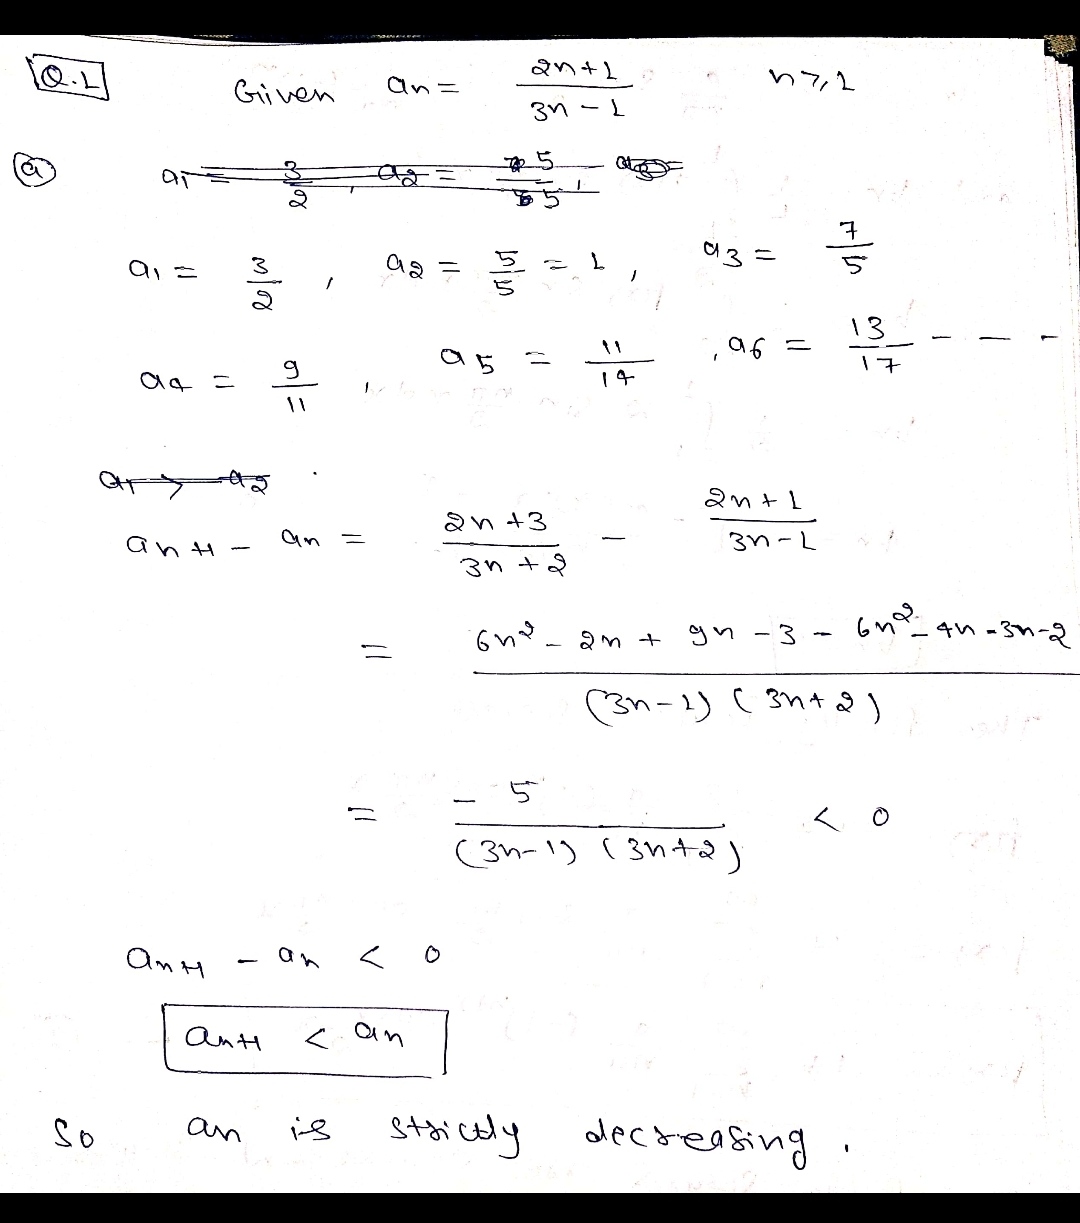 Q.1 Given an = 2n+1 / 3n-1 n ≥ 1
(a) a1 = 3/2, a2 = 5/5, a3 =
a1 = 3/2, a2 = 5/5 = 1, a3 = 7/5
a4 = 9/11, a5 = 11/14, a6 = 13/17 - - -
a1 > a2
an+1 - an = 2n+3 / 3n+2 - 2n+1 / 3n-1
= 6n² - 2n + 9n - 3 - 6n² - 4n - 3n - 2 / (3n-1) (3n+2)
= - 5 / (3n-1) (3n+2) < 0
an+1 - an < 0
an+1 < an
So an is strictly decreasing.